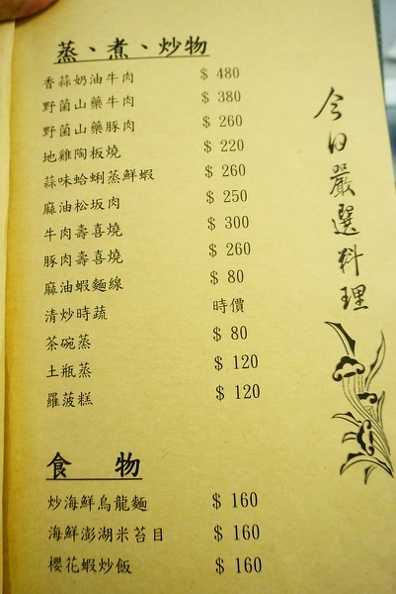 蒸、煮、炒物
香蒜奶油牛肉 $ 480
野菌山藥牛肉 $ 380
野菌山藥豚肉 $ 260
地雞陶板燒 $ 220
蒜味蛤蜊蒸鮮蝦 $ 260
麻油松坂肉 $ 250
牛肉壽喜燒 $ 300
豚肉壽喜燒 $ 260
麻油蝦麵線 $ 80
清炒時蔬 時價
茶碗蒸 $ 80
土瓶蒸 $ 120
羅菠糕 $ 120
食 物
炒海鮮烏龍麵 $ 160
海鮮澎湖米苔目 $ 160
櫻花蝦炒飯 $ 160
今日嚴選料理